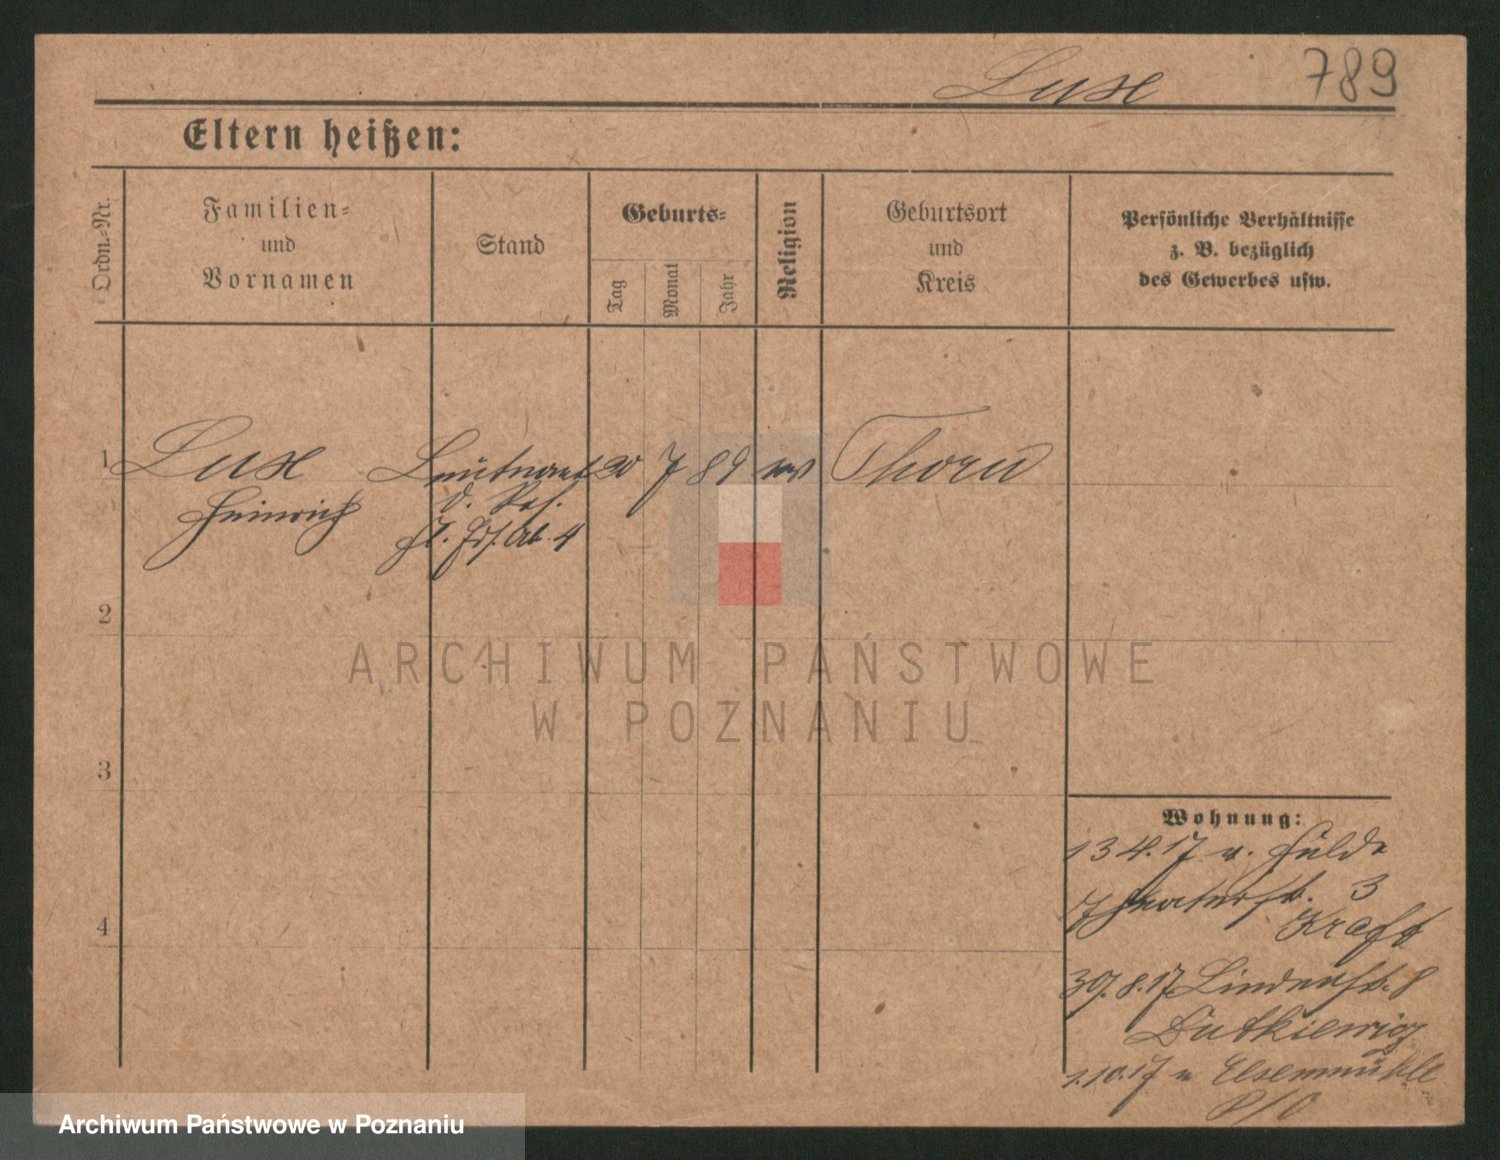 Luse 789
Eltern heißen:
Ordn.=Nr.
Familien=
und
Vornamen
Stand
Geburts=
Tag
Monat
Jahr
Religion
Geburtsort
und
Kreis
Persönliche Verhältnisse
z. B. bezüglich
des Gewerbes usw.
1 Luse Leutnant 20 7 89 ev Thorn
Heinrich d. Res.
Fl. Ers. Ab. 4
2
3
4
Wohnung:
13 4. 17 v. Fulda
Theaterstr. 3
Kraft
30/8.17. Lindenstr. 8
Dutkiewicz
1.10.17 n Elsenmühle
P/O
ARCHIWUM PAŃSTWOWE
W POZNANIU
Archiwum Państwowe w Poznaniu